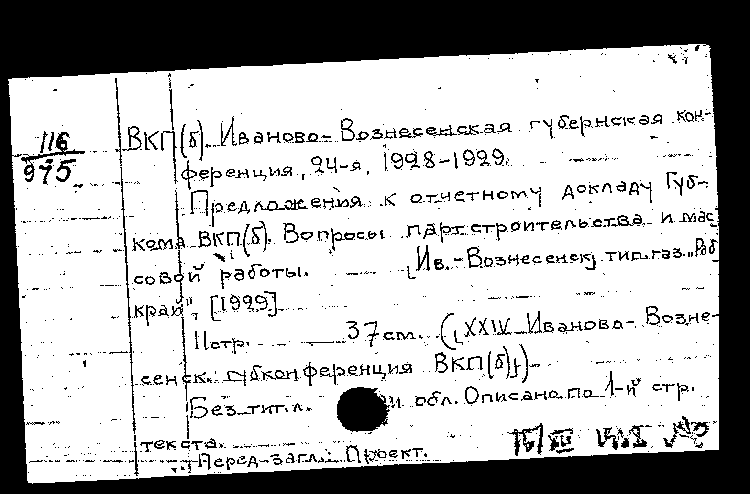 116
975
ВКП(б). Иваново-Вознесенская губернская кон-
ференция, 24-я, 1928-1929.
Предложения к отчетному докладу Губ-
кома ВКП(б). Вопросы партстроительства и мас
совой работы. [Ив.-Вознесенск] тип. газ. „Раб
край", [1929]
11 стр. 37 см. ([XXIV Иваново-Возне-
сенск. губконференция ВКП(б)])-
Без тит. л. и обл. Описано по 1-й стр.
текста.
Перед загл.: Проект.